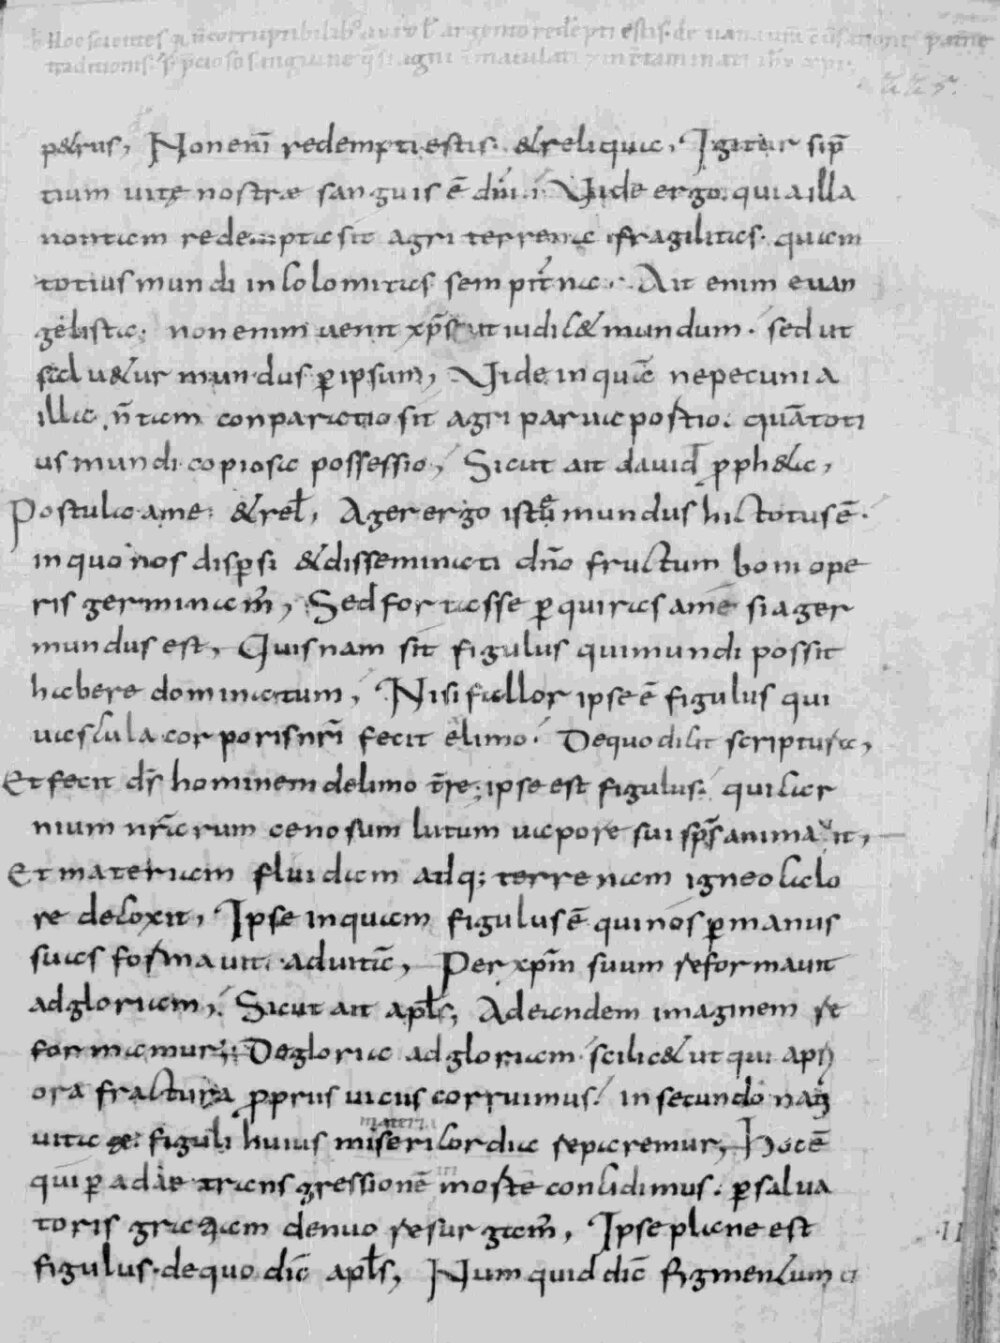 Hoc scientes q̄ n̄ corruptibilib; auro ł argento redēpti estis. de uana ūra cōuersatione paterne
traditionis. s; p̄cioso sanguine q̄si agni īmaculati & incōtaminati ihu xp̄i.
p&rus, Non enī redempti estis. & reliqua, Igitur si p̄
tium uitę nostrae sanguis ē dn̄i. Uide ergo. quia illa
non tam redempta sit agri terreni fragilitas. quam
totius mundi incolomitas sempit̄na. Ait enim euan
gelista; non enim uenit xp̄s ut iudic& mundum. sed ut
salu&ur mundus ꝑ ipsum, Uide inquā ne pecunia
illa, n̄ tam conparatio sit agri parua postio. quā toti
us mundi copiosa possessio, Sicut ait dauid proph&a,
Postula a me. & rel̄, Ager ergo iste mundus hic totus ē.
in quo nos disp̄si & disseminati dn̄o fructum boni ope
ris germinam̄, Sed fortasse ꝑquiras a me si ager
mundus est, Quisnam sit figulus qui mundi possit
habere dominatum, Nisi fallor ipse ē figulus qui
uascula corporis nr̄i fecit e limo. De quo dicit scriptura,
Et fecit ds̄ hominem de limo t̄re; ipse est figulus. qui car
nium nr̄arum cenosum lutum uapore sui sp̄s animauit,
Et materiam fluidam adq; terrenam igneo calo
re decoxit, Ipse inquam figulus ē qui nos ꝑ manus
suas formauit. ad uitā, Per xp̄m suum reformauit
ad gloriam, Sicut ait apl̄s, Ad eandem imaginem re
formamur; De gloria ad gloriam. scilic& ut qui a pri
ora fractura propriis uicus corruimus. in secundo nag
uitae figuli huius misericordia reparemur, Hoc ē
qui ꝑ adae transgressionē morte concidimus. ꝑ salua
toris gratiam denuo resurgam̄, Ipse plane est
figulus. de quo dic̄ apl̄s, Numquid dic̄ figmentum